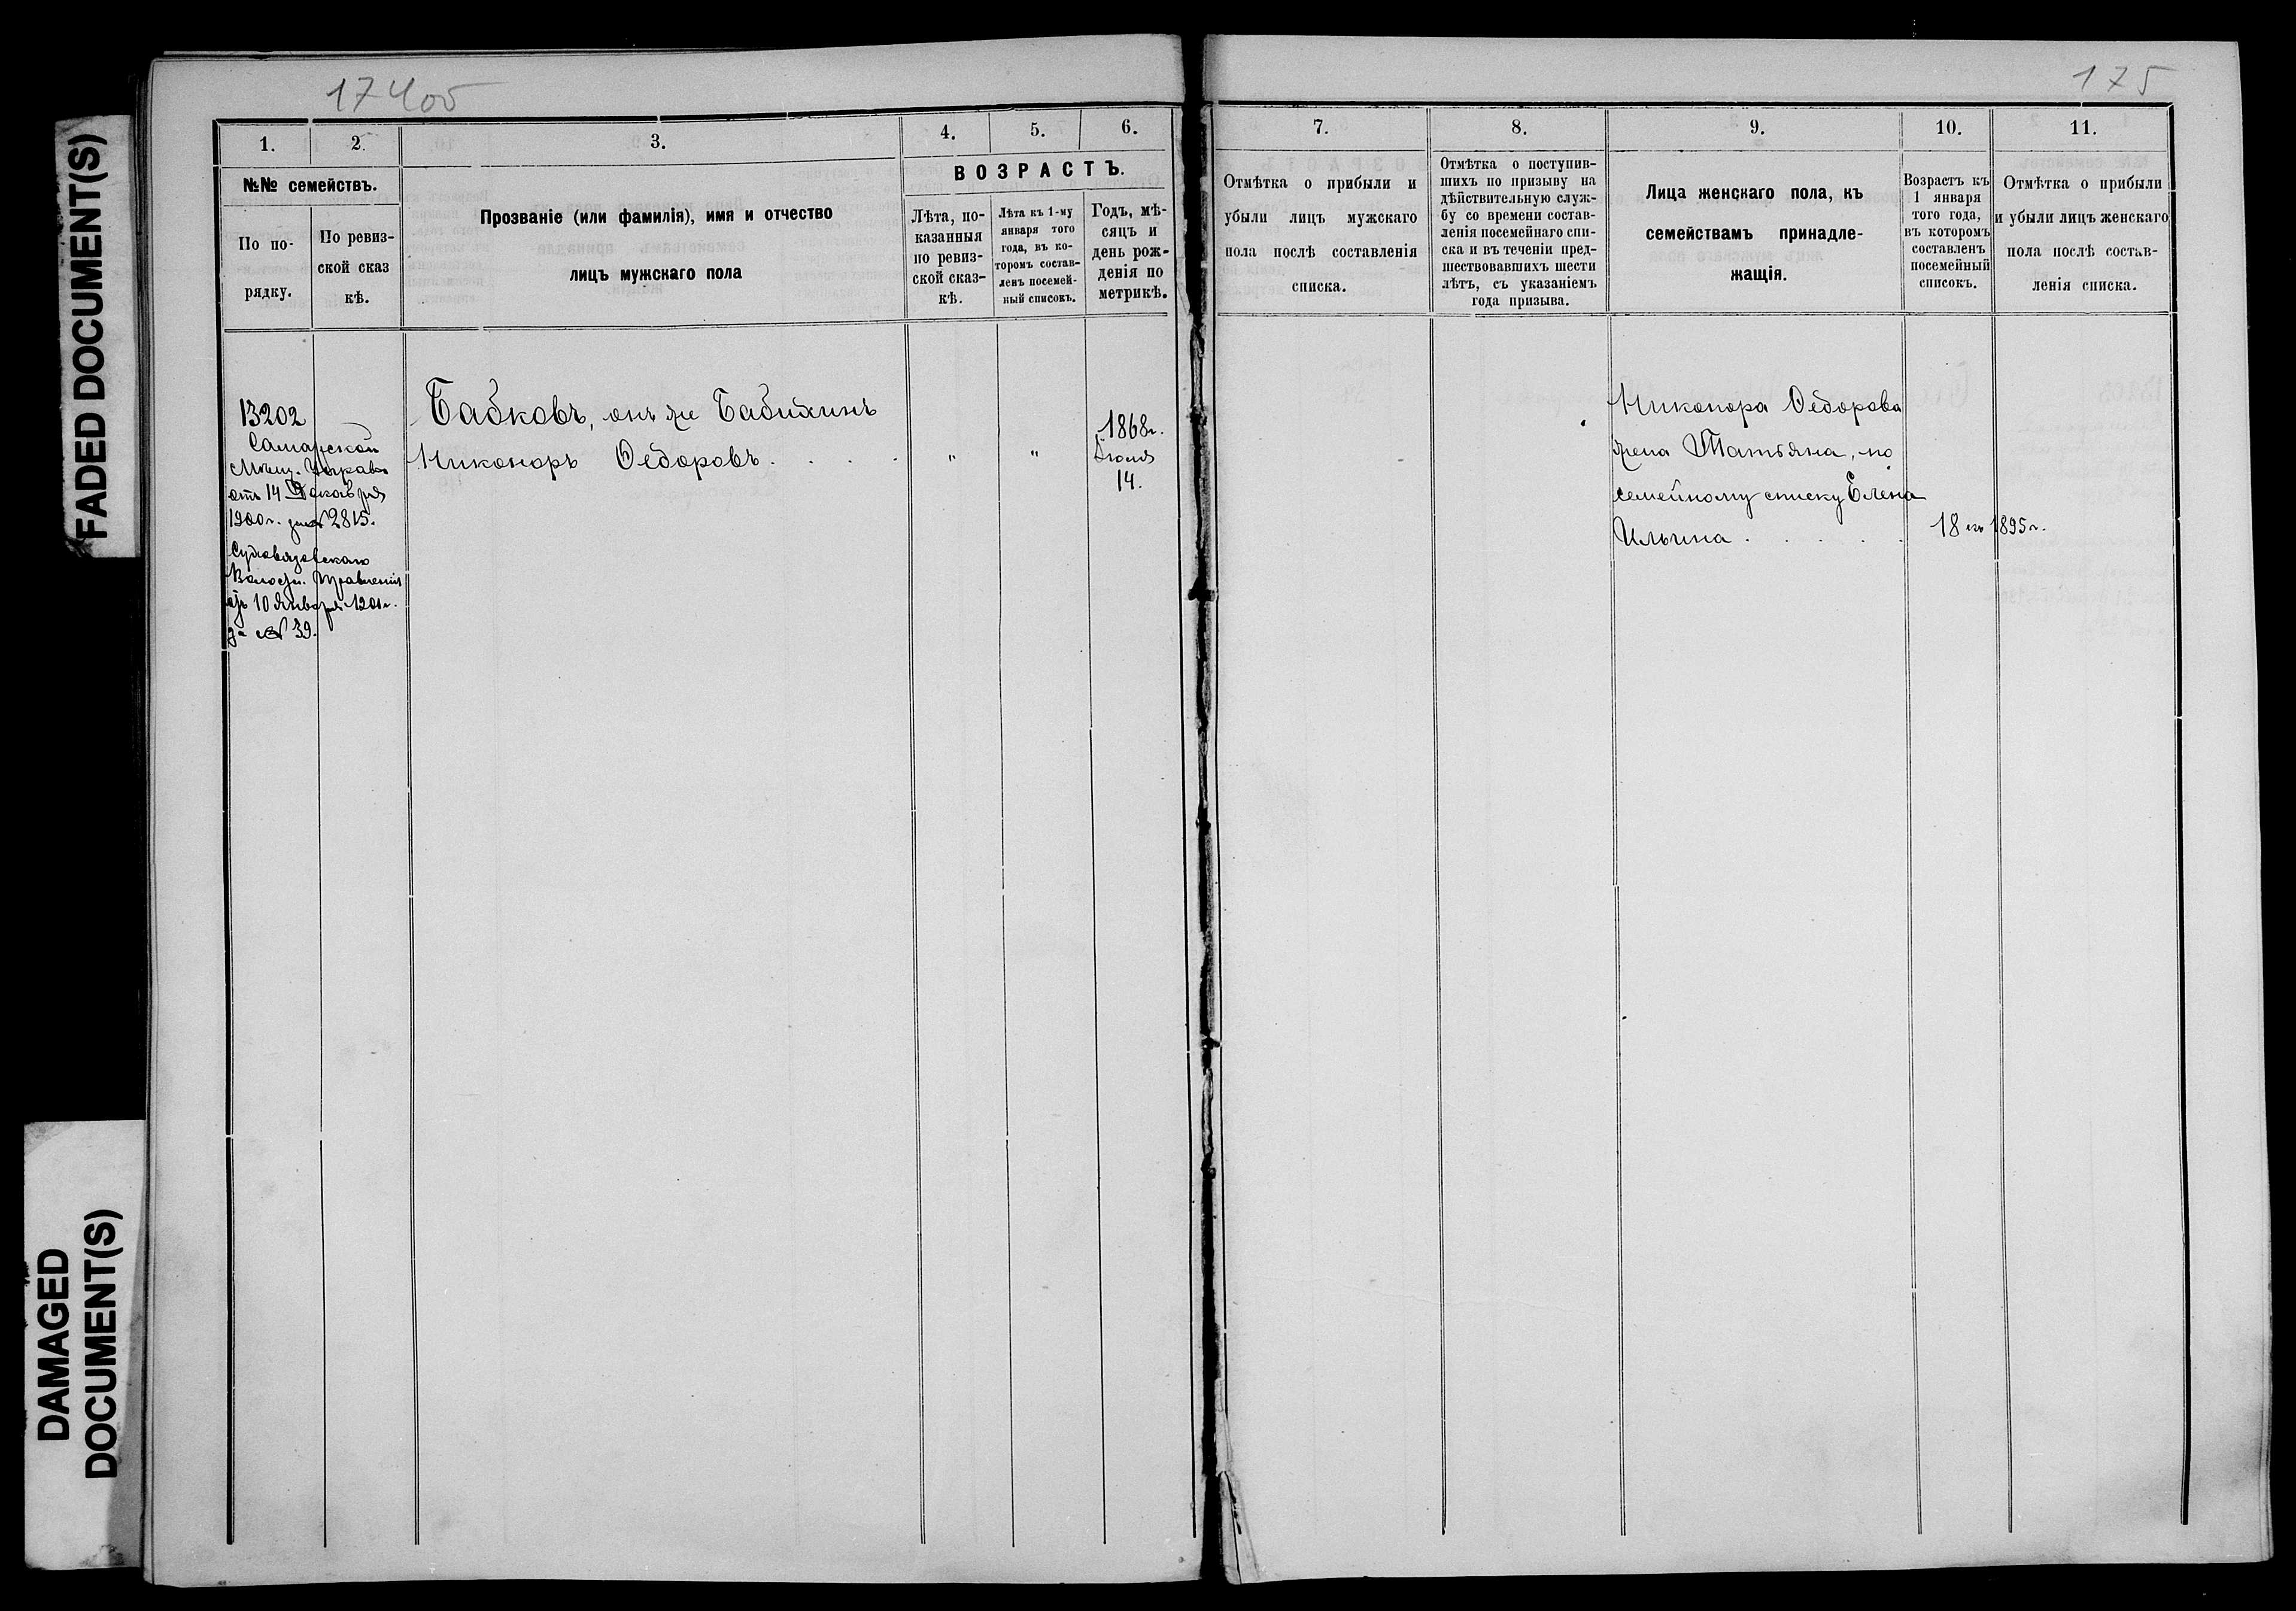 FADED DOCUMENT(S)
DAMAGED
DOCUMENT(S)
174об
1.
2.
3.
4.
5.
6.
№№ семействъ.
По по-
рядку.
По ревиз-
ской сказ
кѣ.
Прозваніе (или фамилія), имя и отчество
лицъ мужскаго пола
ВОЗРАСТЪ.
Лѣта, по-
казанныя
по ревиз-
ской сказ-
кѣ.
Лѣта къ 1-му
января того
года, въ ко-
торомъ состав-
ленъ посемей-
ный списокъ.
Годъ, мѣ-
сяцъ и
день рож-
денія по
метрикѣ.
13202
Самарской
Мѣщ. Управы
отъ 14 Декабря
1900г. за № 2815.
Волостн. Правленія
отъ 10 Января 1901г.
за № 39.
Бабковъ, онъ же Бабихинъ
Никоноръ Ѳедоровъ . . . .
"
"
1868г.
Іюля
14.
175
7.
8.
9.
10.
11.
Отмѣтка о прибыли и
убыли лицъ мужскаго
пола послѣ составленія
списка.
Отмѣтка о поступив-
шихъ по призыву на
дѣйствительную служ-
бу со времени состав-
ленія посемейнаго спи-
ска и въ теченіи пред-
шествовавшихъ шести
лѣтъ, съ указаніемъ
года призыва.
Лица женскаго пола, къ
семействамъ принадле-
жащія.
Возрастъ къ
1 января
того года,
въ которомъ
составленъ
посемейный
списокъ.
Отмѣтка о прибыли
и убыли лицъ женскаго
пола послѣ состав-
ленія списка.
Никонора Ѳедорова
жена Татьяна, по
семейному списку Елена
Ильина . . . . .
18 къ 1895г.